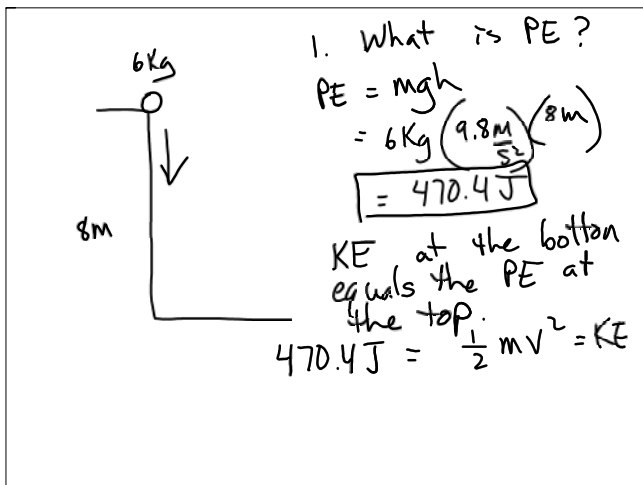 6Kg
8m
1. What is PE?
PE = mgh
= 6Kg (9.8 m/s²) (8m)
= 470.4 J
KE at the botton
equals the PE at
the top.
470.4 J = ½ mv² = KE